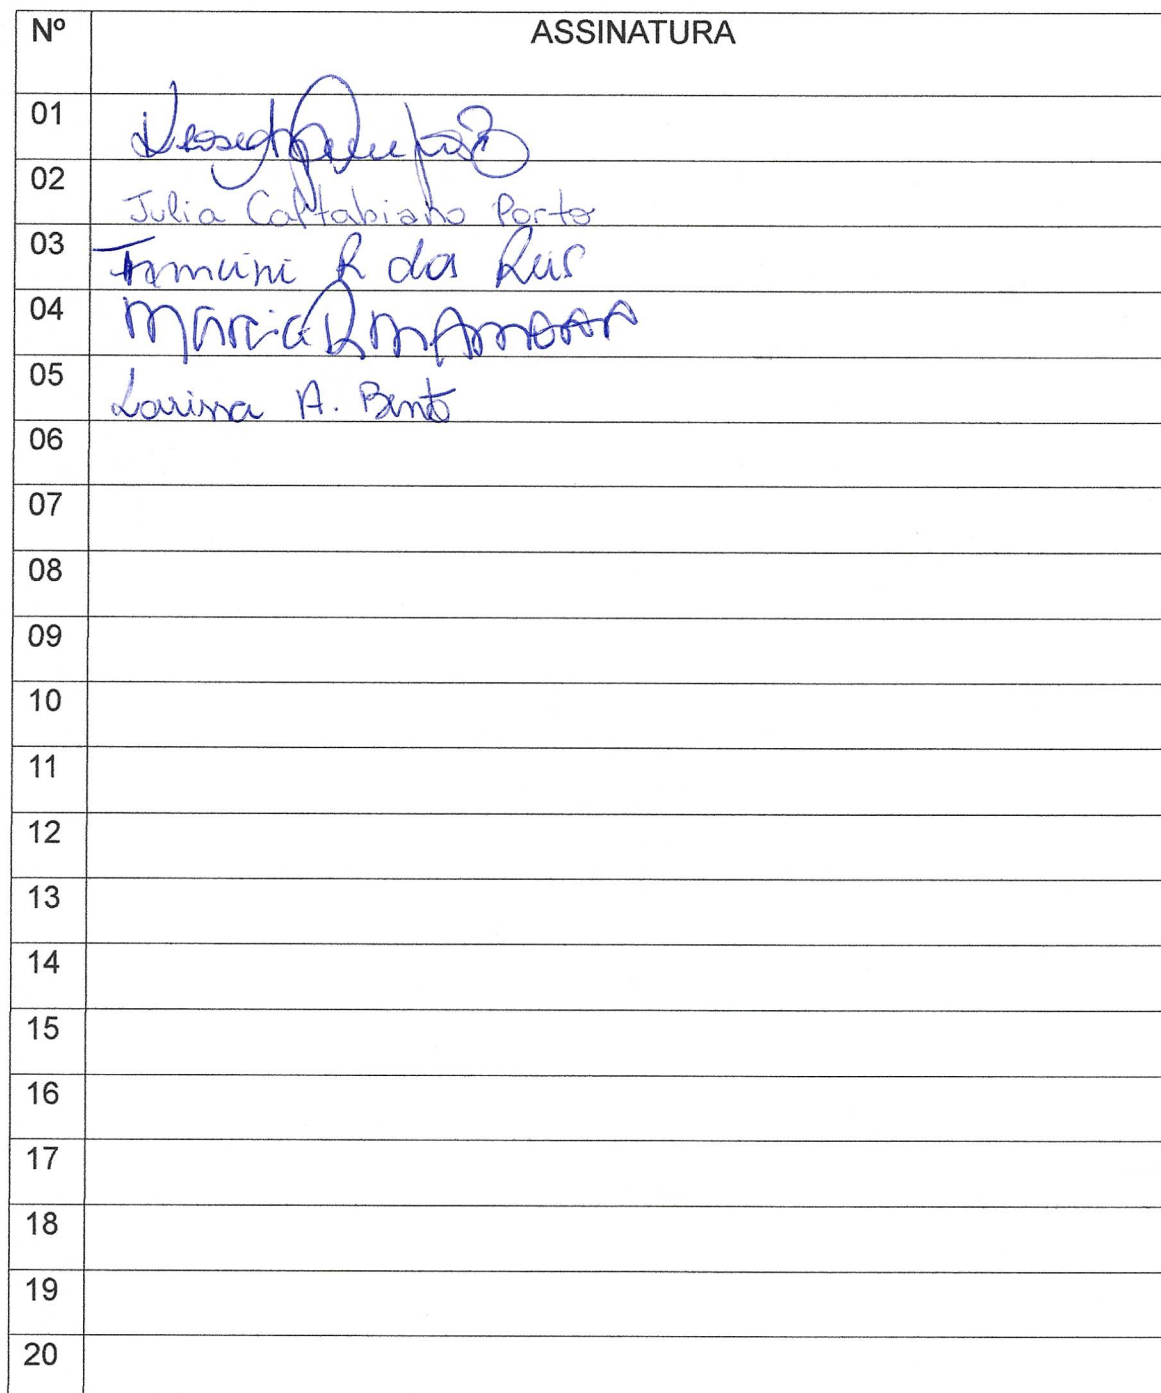 Nº ASSINATURA
01
02 Julia Caltabiano Porto
03 R dos Reis
04 Marcia R
05 Larissa A. Bento
06
07
08
09
10
11
12
13
14
15
16
17
18
19
20